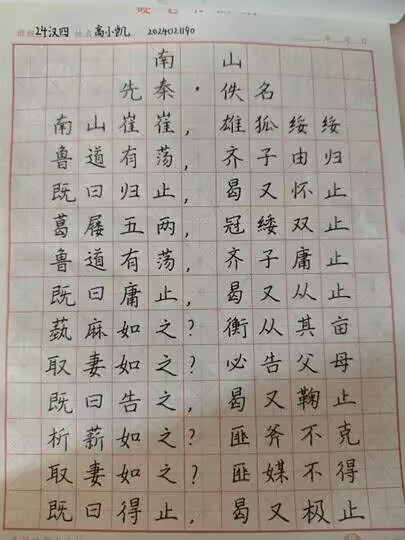 班级24汉四 姓名高小凯 2024021190
南山
先秦·佚名
南山崔崔,雄狐绥绥
鲁道有荡,齐子由归
既曰归止,曷又怀止
葛屦五两,冠緌双止
鲁道有荡,齐子庸止
既曰庸止,曷又从止
蓺麻如之?衡从其亩
取妻如之?必告父母
既曰告之,曷又鞠止
析薪如之?匪斧不克
取妻如之?匪媒不得
既曰得止,曷又极止